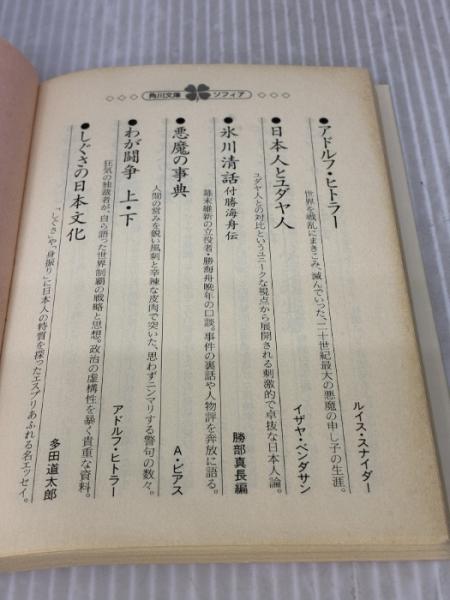 角川文庫 ソフィア
●アドルフ・ヒトラー
世界を戦乱にまきこみ、滅んでいった、二十世紀最大の悪魔の申し子の生涯。
ルイス・スナイダー
●日本人とユダヤ人
ユダヤ人との対比というユニークな視点から展開される刺激的で卓抜な日本人論。
イザヤ・ベンダサン
●氷川清話 付勝海舟伝
幕末維新の立役者・勝海舟晩年の口談。事件の裏話や人物評を奔放に語る。
勝部真長編
●悪魔の事典
人間の営みを鋭い風刺と辛辣な皮肉で突いた、思わずニンマリする警句の数々。
A・ビアス
●わが闘争 上・下
狂気の独裁者が、自ら語った世界制覇の戦略と思想。政治の虚構性を暴く貴重な資料。
アドルフ・ヒトラー
●しぐさの日本文化
「しぐさ」や「身振り」に日本人の特質を探ったエスプリあふれる名エッセイ。
多田道太郎